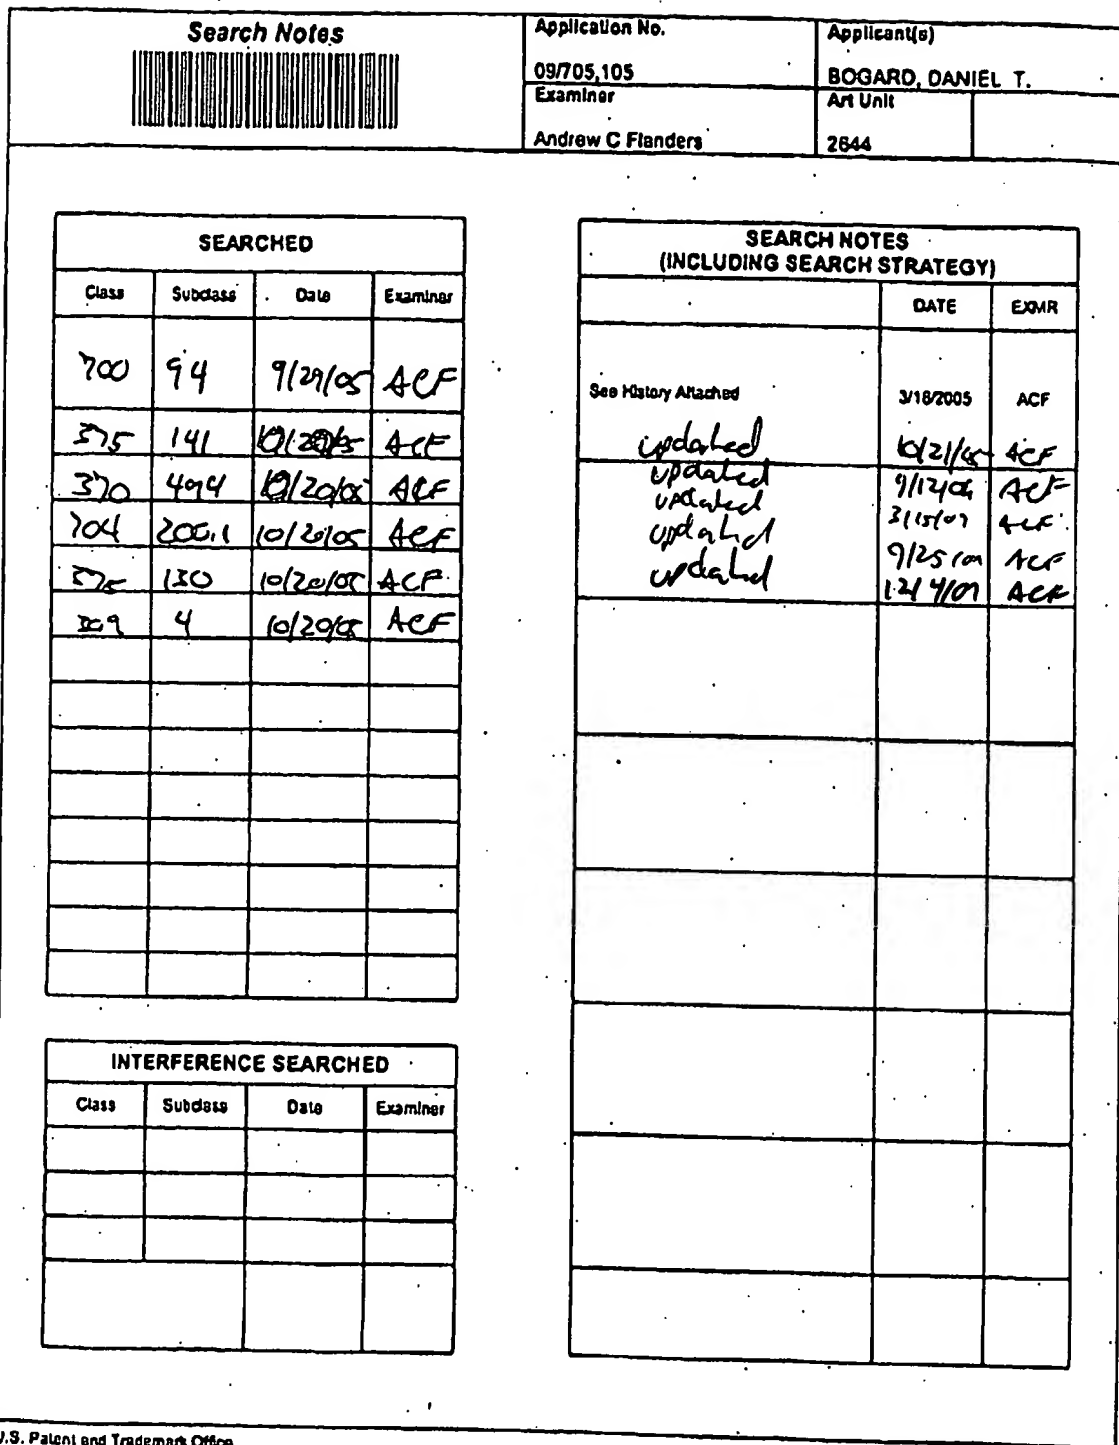 Search Notes
Application No.
09/705,105
Applicant(s)
BOGARD, DANIEL T.
Examiner
Andrew C Flanders
Art Unit
2644
SEARCHED
Class Subclass Date Examiner
700 94 9/29/05 ACF
375 141 10/20/05 ACF
370 494 10/20/05 ACF
704 200.1 10/20/05 ACF
375 130 10/20/05 ACF
4 10/20/05 ACF
INTERFERENCE SEARCHED
Class Subclass Date Examiner
SEARCH NOTES
(INCLUDING SEARCH STRATEGY)
DATE EXMR
See History Attached 3/18/2005 ACF
updated 10/21/05 ACF
updated 9/12/06 ACF
updated 3/15/07 ACF
updated 9/25/07 ACF
updated 12/4/07 ACF
U.S. Patent and Trademark Office